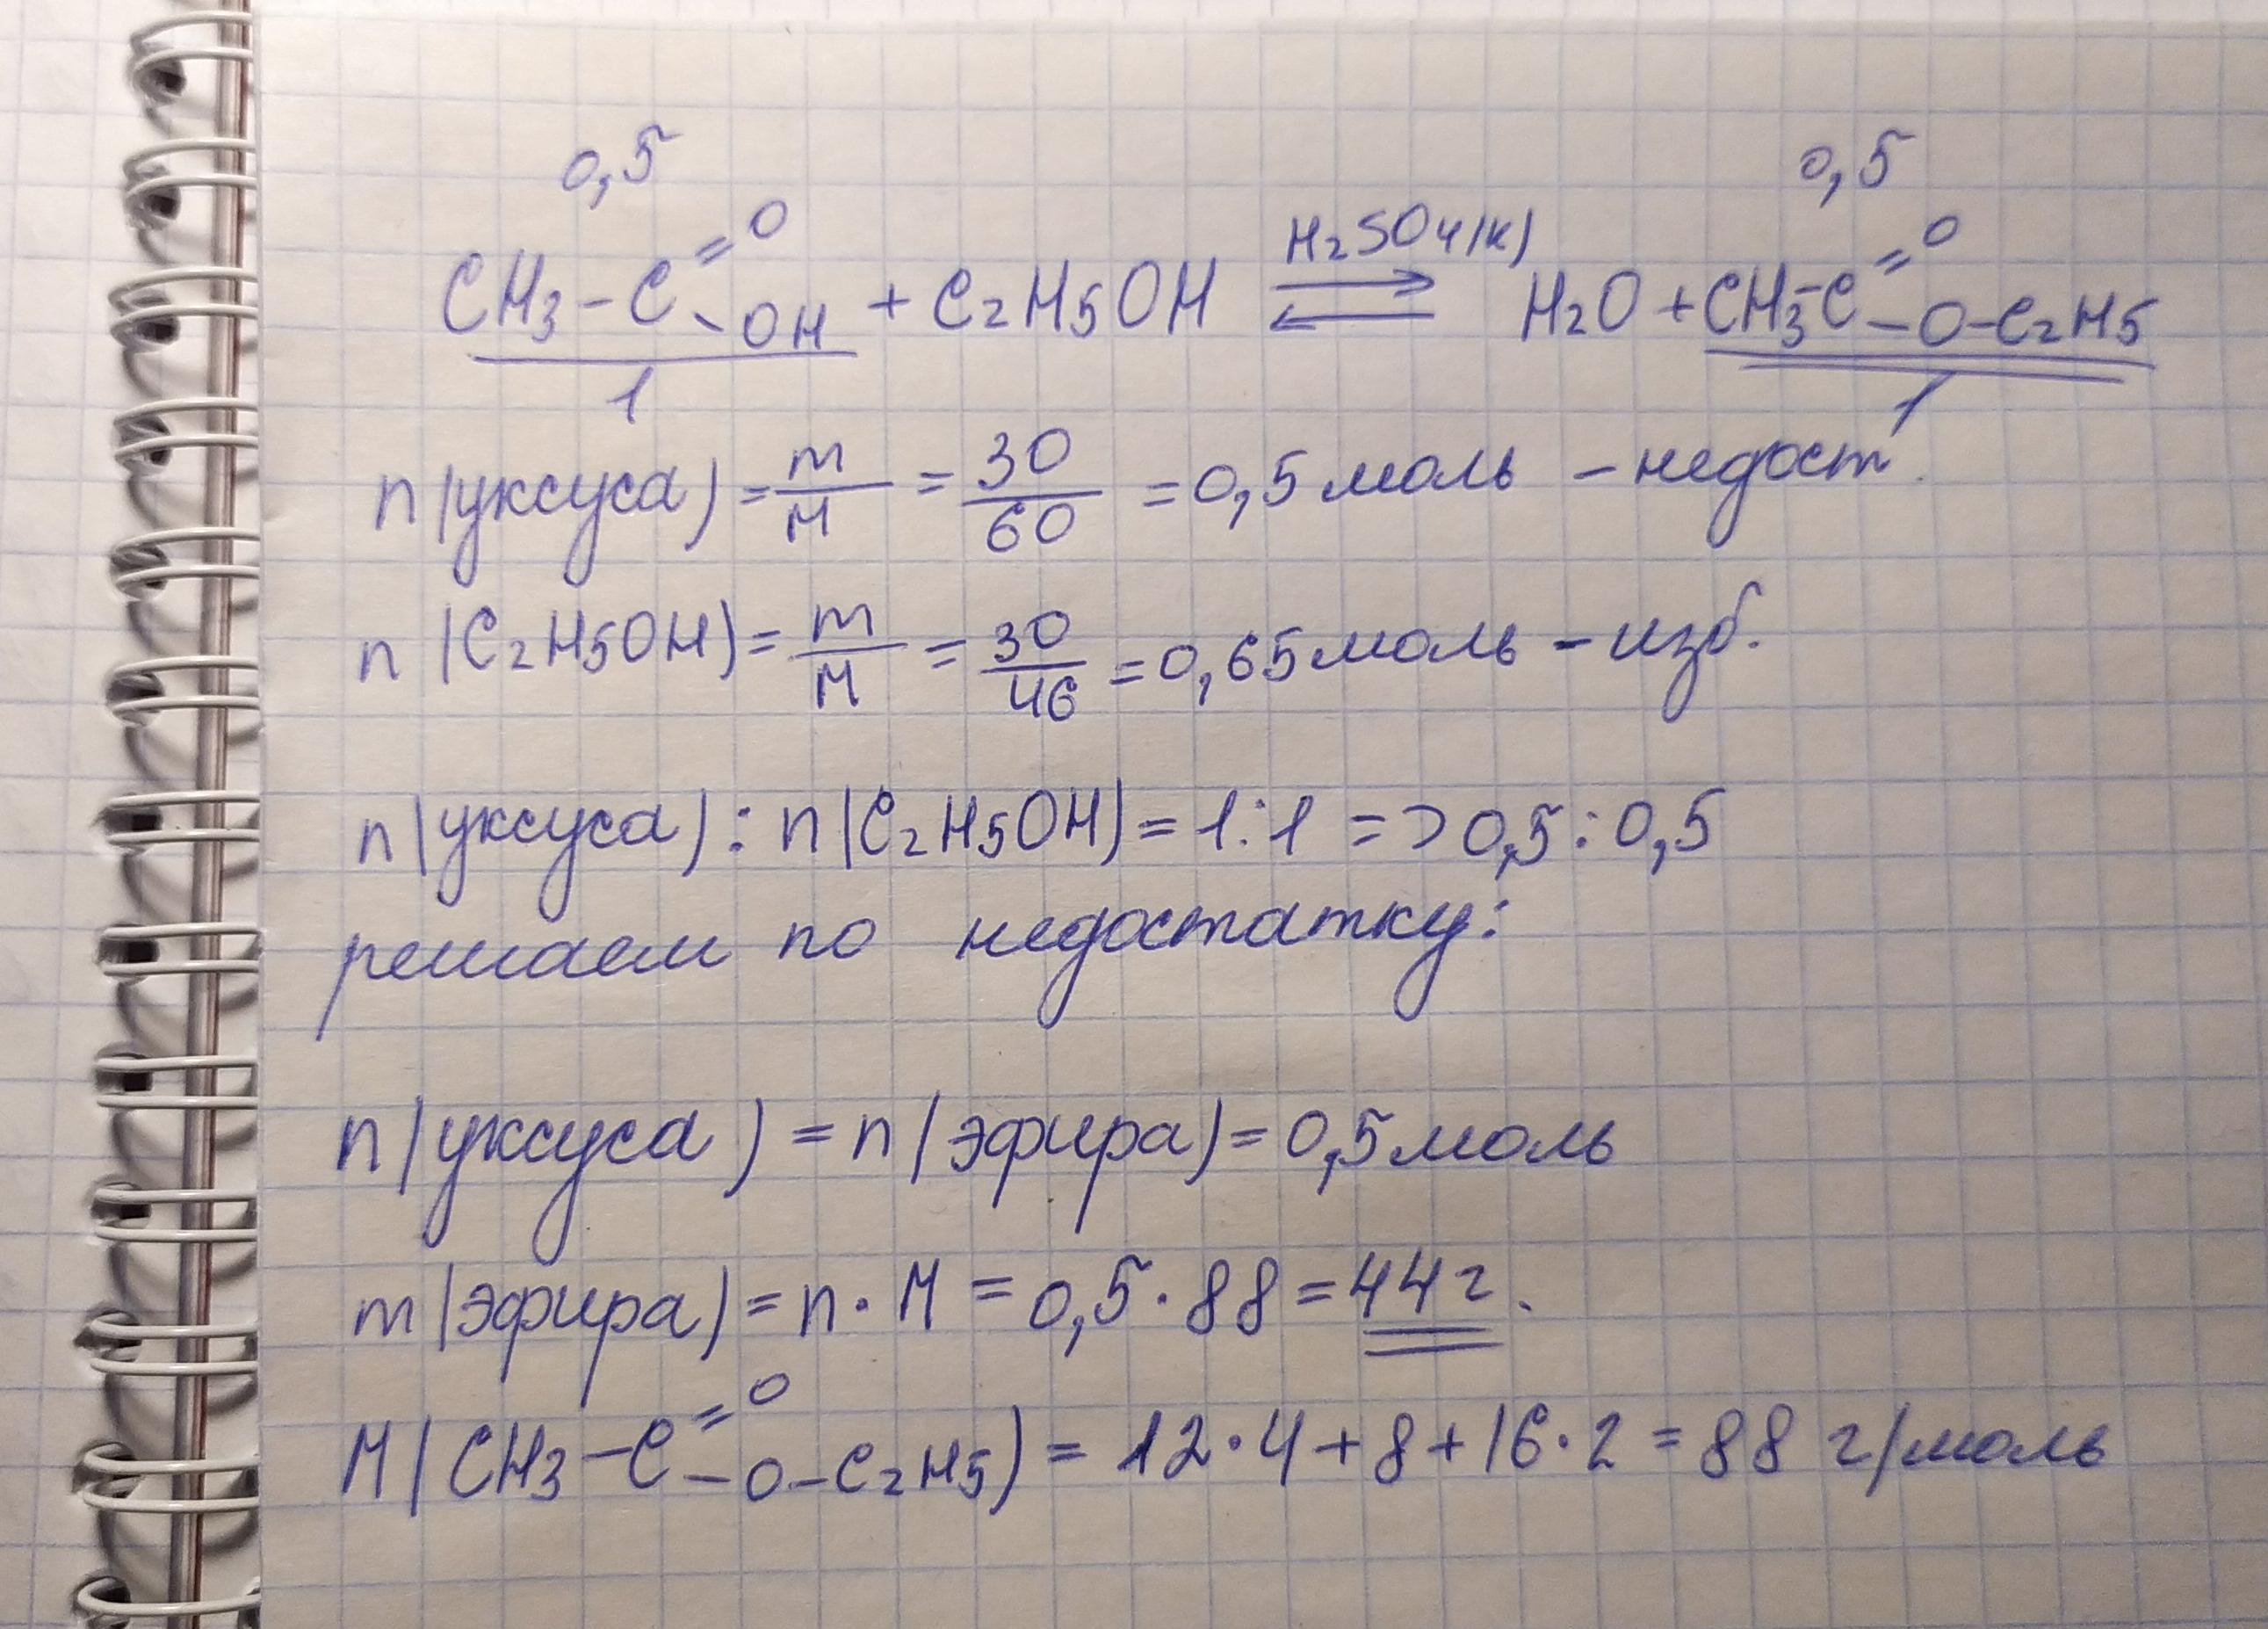 0,5 0,5
CH3-C=O-OH + C2H5OH ⇄ H2SO4(к) H2O + CH3-C=O-O-C2H5
1 1
n(уксуса) = m/M = 30/60 = 0,5 моль - недост.
n(C2H5OH) = m/M = 30/46 = 0,65 моль - изб.
n(уксуса) : n(C2H5OH) = 1:1 => 0,5 : 0,5
решаем по недостатку:
n(уксуса) = n(эфира) = 0,5 моль
m(эфира) = n · M = 0,5 · 88 = 44 г.
M(CH3-C=O-O-C2H5) = 12·4+8+16·2 = 88 г/моль